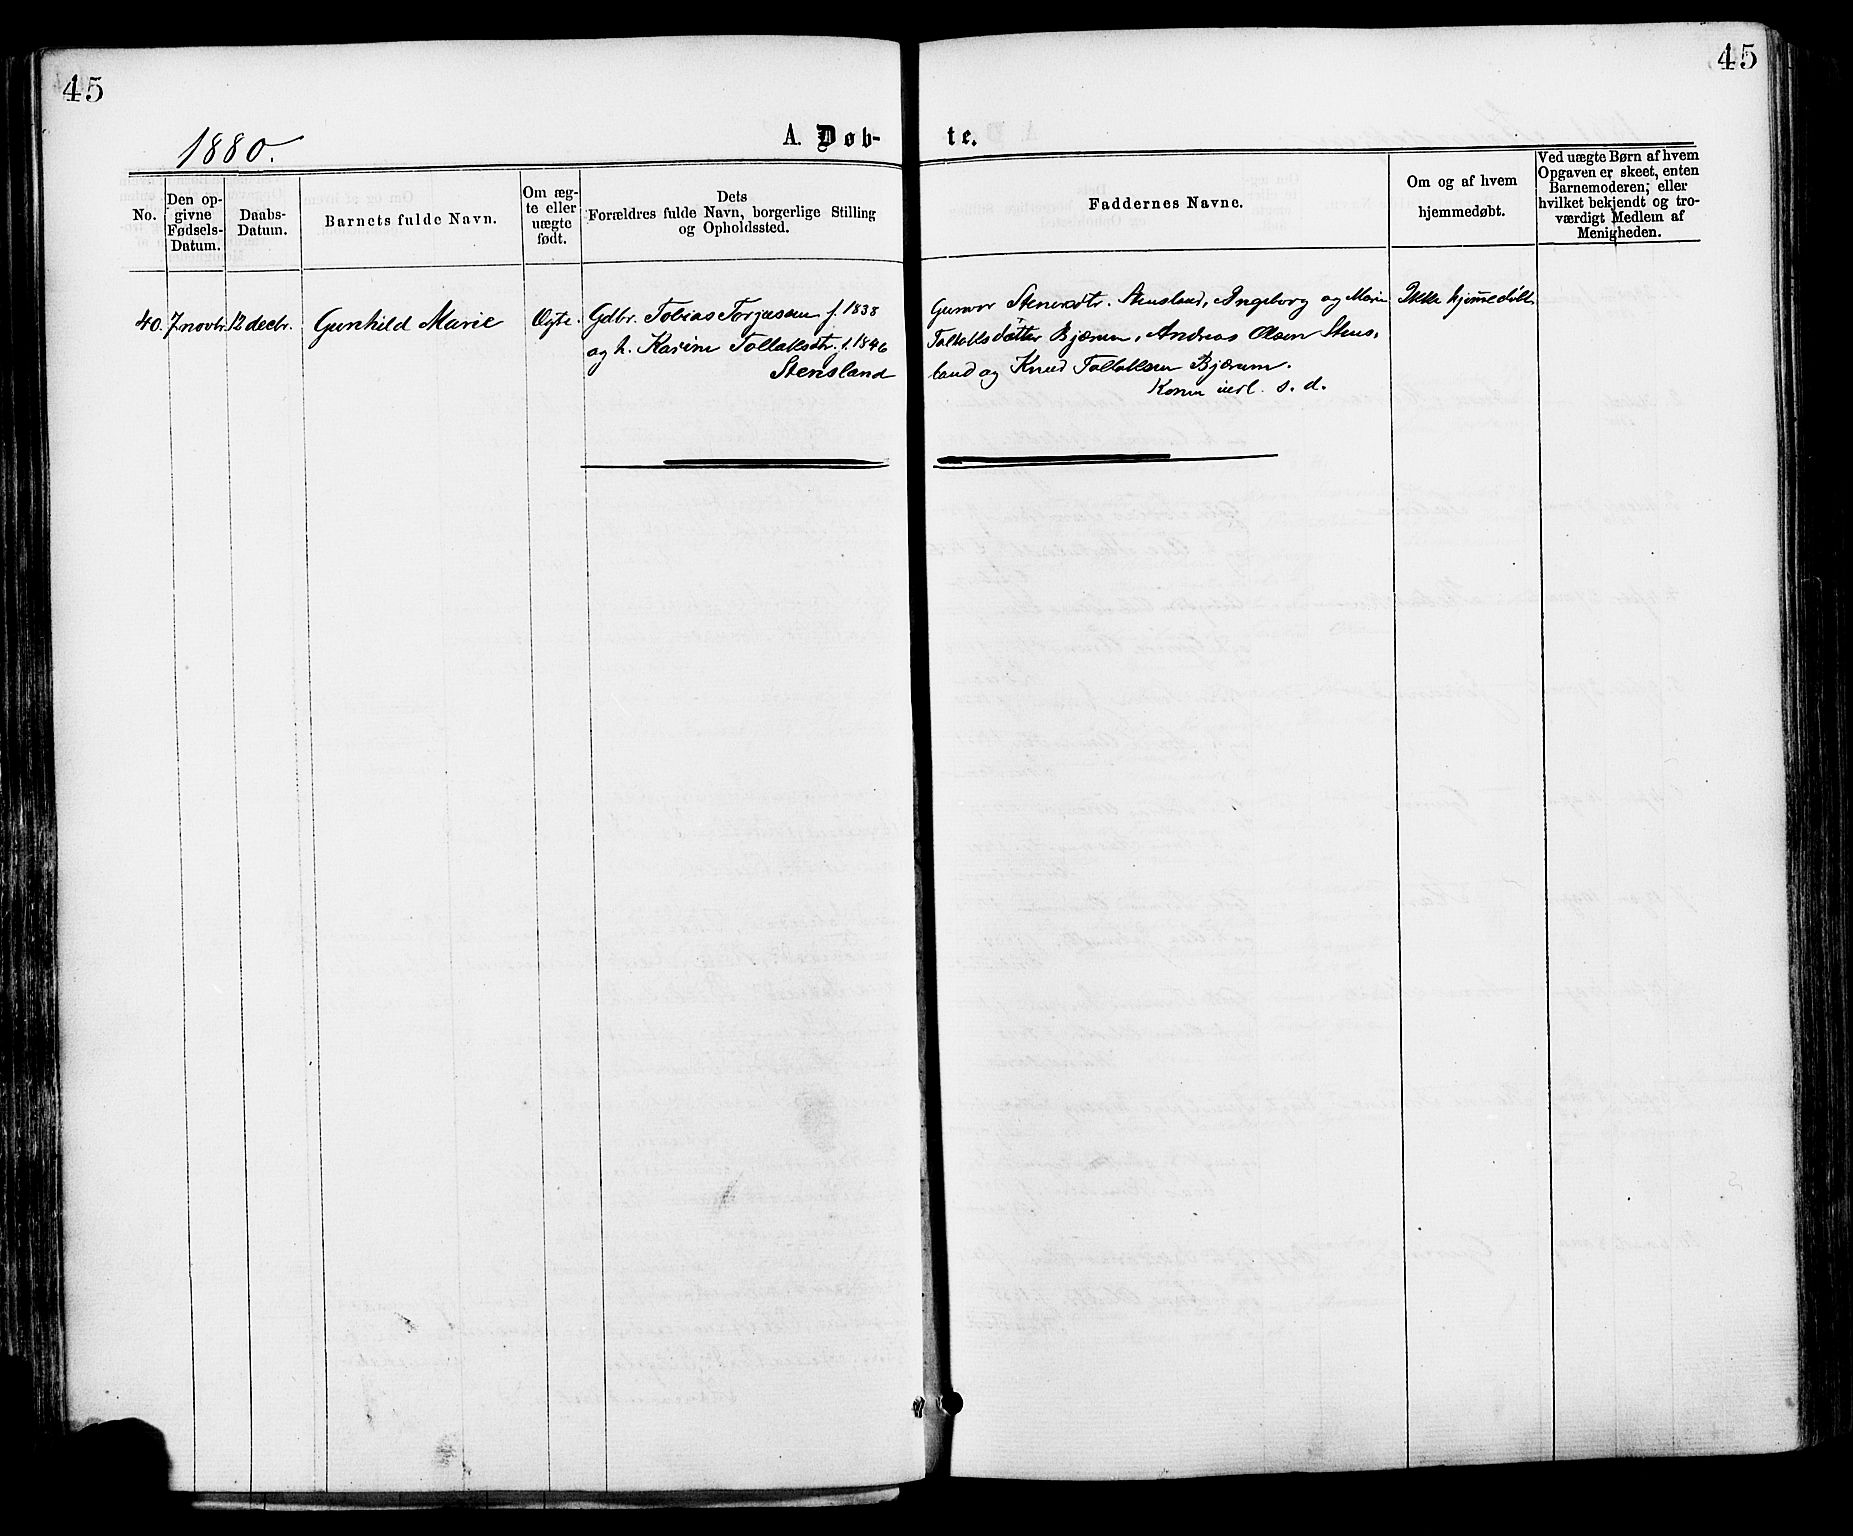 45
45
1880.
A. Døb-
te.
No.
Den op-
givne
Fødsels-
Datum.
Daabs-
Datum.
Barnets fulde Navn.
Om æg-
te eller
uægte
født.
Dets
Forældres fulde Navn, borgerlige Stilling
og Opholdssted.
Faddernes Navne.
Om og af hvem
hjemmedøbt.
Ved uægte Børn af hvem
Opgaven er skeet, enten
Barnemoderen; eller
hvilket bekjendt og tro-
værdigt Medlem af
Menigheden.
40. 7 novbr. 12 decbr. Gunhild Marie Ægte.
Gdbr. Tobias Torjussen f. 1838
og h. Karine Tollaksdtr. f. 1846
Stensland
Gunvor Stenersdtr. Stensland, Ingeborg og Marie
Tollaksdatter Bjærum, Andreas Olsen Stens-
land og Knud Tollaksen Bjærum.
s. d.
Ikke hjemmedøbt